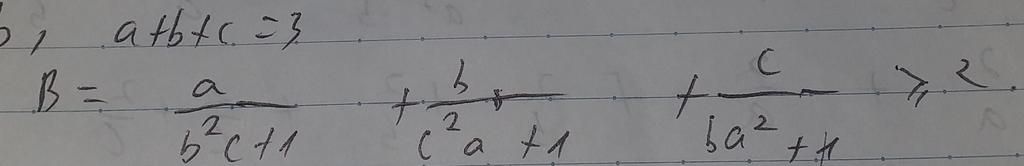 b, a+b+c=3
B = a/(b²c+1) + b/(c²a+1) + c/(ba²+1) ≥ 2.